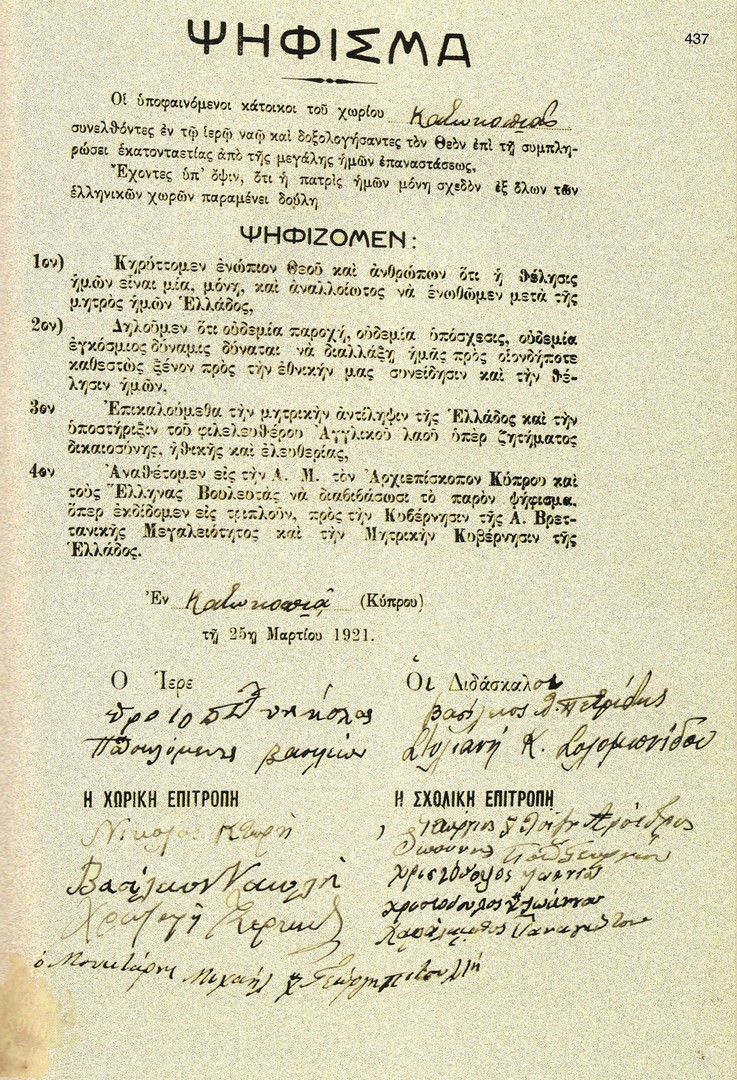 437
ΨΗΦΙΣΜΑ
Οἱ ὑποφαινόμενοι κάτοικοι τοῦ χωρίου Κατωκοπιᾶς
συνελθόντες ἐν τῷ ἱερῷ ναῷ καὶ δοξολογήσαντες τὸν Θεὸν ἐπὶ τῇ συμπλη-
ρώσει ἑκατονταετίας ἀπὸ τῆς μεγάλης ἡμῶν ἐπαναστάσεως,
Ἔχοντες ὑπ' ὄψιν, ὅτι ἡ πατρὶς ἡμῶν μόνη σχεδὸν ἐξ ὅλων τῶν
ἑλληνικῶν χωρῶν παραμένει δούλη
ΨΗΦΙΖΟΜΕΝ:
1ον) Κηρύττομεν ἐνώπιον Θεοῦ καὶ ἀνθρώπων ὅτι ἡ θέλησις
ἡμῶν εἶναι μία, μόνη, καὶ ἀναλλοίωτος νὰ ἑνωθῶμεν μετὰ τῆς
μητρὸς ἡμῶν Ἑλλάδος,
2ον) Δηλοῦμεν ὅτι οὐδεμία παροχή, οὐδεμία ὑπόσχεσις, οὐδεμία
ἐγκόσμιος δύναμις δύναται νὰ διαλλάξῃ ἡμᾶς πρὸς οἱονδήποτε
καθεστὼς ξένον πρὸς τὴν ἐθνικήν μας συνείδησιν καὶ τὴν θέ-
λησιν ἡμῶν.
3ον Ἐπικαλούμεθα τὴν μητρικὴν ἀντίληψιν τῆς Ἑλλάδος καὶ τὴν
ὑποστήριξιν τοῦ φιλελευθέρου Ἀγγλικοῦ λαοῦ ὑπὲρ ζητήματος
δικαιοσύνης, ἠθικῆς καὶ ἐλευθερίας,
4ον Ἀναθέτομεν εἰς τὴν Α. Μ. τὸν Ἀρχιεπίσκοπον Κύπρου καὶ
τοὺς Ἕλληνας Βουλευτὰς νὰ διαβιβάσωσι τὸ παρὸν ψήφισμα,
ὅπερ ἐκδίδομεν εἰς τριπλοῦν, πρὸς τὴν Κυβέρνησιν τῆς Α. Βρετ-
τανικῆς Μεγαλειότητος καὶ τὴν Μητρικὴν Κυβέρνησιν τῆς
Ἑλλάδος.
Ἐν Κατωκοπιᾷ (Κύπρου)
τῇ 25ῃ Μαρτίου 1921.
Ο Ἱερε
Οἱ Διδάσκαλοι
Βασίλειος Πετρίδης
Στυλιανὴ Κ. Σολομωνίδου
Η ΧΩΡΙΚΗ ΕΠΙΤΡΟΠΗ
Νικόλας
Βασίλειου
ὁ Μουκτάρης Μιχαὴλ
Η ΣΧΟΛΙΚΗ ΕΠΙΤΡΟΠΗ
Πρόεδρος
Χριστόδουλος
Χριστόδουλος
Χαράλαμπος Παναγιώτου